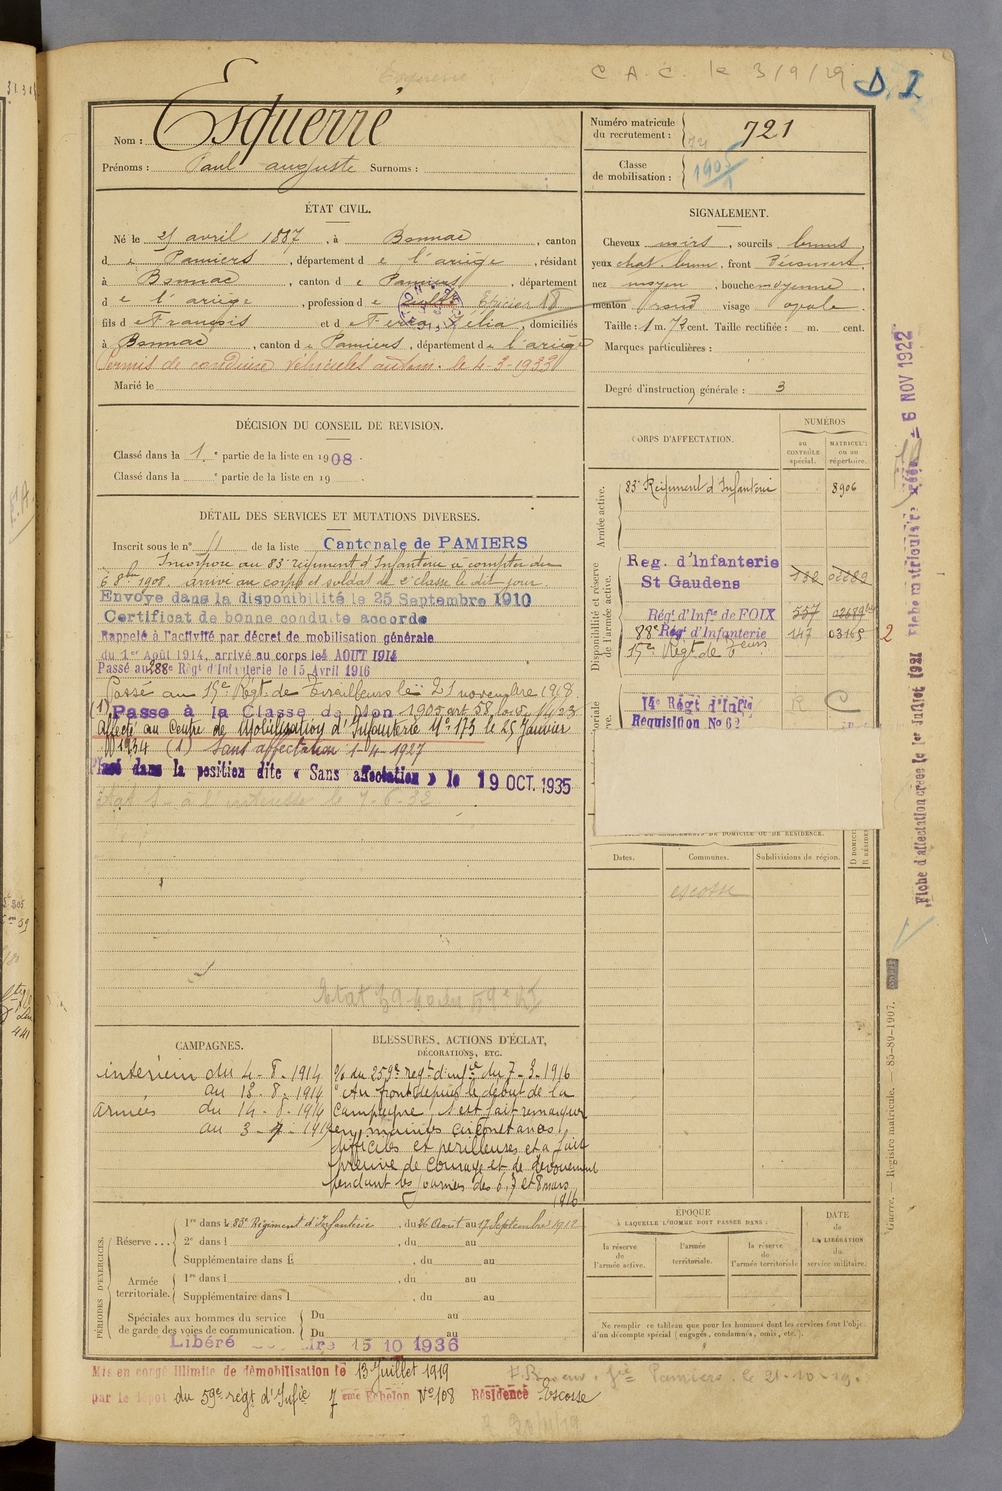 C A. C. le 3/9/29
D. I
Nom : Esquerré
Prénoms : Paul auguste Surnoms :
Numéro matricule du recrutement : 721
Classe de mobilisation : 1905
ÉTAT CIVIL.
Né le 21 avril 1887, à Bonnac, canton
de Pamiers, département de l'ariège, résidant
à Bonnac, canton de Pamiers, département
de l'ariège, profession de Epicier 18
fils de François et de Félia, domiciliés
à Bonnac, canton de Pamiers, département de l'ariège
Permis de conduire véhicules autom. le 4-3-1933
Marié le
SIGNALEMENT.
Cheveux noirs, sourcils bruns,
yeux chat. brun, front Découvert,
nez moyen, bouche moyenne,
menton rond visage ovale.
Taille : 1 m. 72 cent. Taille rectifiée : m. cent.
Marques particulières :
Degré d'instruction générale : 3
DÉCISION DU CONSEIL DE REVISION.
Classé dans la 1.e partie de la liste en 1908.
Classé dans la e partie de la liste en 19
DÉTAIL DES SERVICES ET MUTATIONS DIVERSES.
Inscrit sous le n° 11 de la liste Cantonale de PAMIERS
Incorporé au 83e régiment d'Infanterie à compter du
6 8bre 1908. arrivé au corps et soldat de 2e classe le dit jour
Envoyé dans la disponibilité le 25 Septembre 1910
Certificat de bonne conduite accordé
Rappelé à l'activité par décret de mobilisation générale
du 1er Août 1914, arrivé au corps le 4 AOUT 1914
Passé au 288e Régt d'Infanterie le 15 Avril 1916
Passé au 15e Régt de Tirailleurs le 21 novembre 1918.
(1) Passé à la Classe de Mon 1905 art 58, loi 1/4/23
Affecté au Centre de Mobilisation d'Infanterie N° 173 le 25 Janvier
1934 (1) Sans affectation 1-4-1927
Placé dans la position dite « Sans affectation » le 19 OCT. 1935
le 7-6-32
CORPS D'AFFECTATION.
NUMÉROS
au CONTRÔLE spécial.
MATRICULE ou au répertoire.
Armée active.
83e Régiment d'Infanterie 8906
Disponibilité et réserve de l'armée active.
Reg. d'Infanterie St Gaudens
Régt d'Infie de FOIX 557
88e Régt d'Infanterie 147 03165
15e Régt de Tirurs
2
14e Régt d'Infie
Requisition No 62
R C
Fiche d'affectation créée le 1er Juillet 1921 Fiche matriculaire créée - 6 NOV 1922
Dates.
Communes.
Subdivisions de région.
escosse
CAMPAGNES.
intérieur du 4-8-1914
au 13-8-1914
armées du 14-8-1914
au 3-4-1919
BLESSURES, ACTIONS D'ÉCLAT, DÉCORATIONS, ETC.
O/ du 259e regt d'infie du 7-3-1916
"Au front depuis le début de la
campagne s'est fait remarquer
en maintes circonstances
difficiles et périlleuses et a fait
preuve de courage et de dévouement
pendant les journées des 6, 7 et 8 mars
1916
PÉRIODES D'EXERCICES.
Réserve... 1re dans le 83e Régiment d'Infanterie, du 26 Aout au 17 Septembre 1912
2e dans l , du au
Supplémentaire dans l , du au
Armée territoriale. 1re dans l , du au
Supplémentaire dans l , du au
Spéciales aux hommes du service de garde des voies de communication. Du au
Du au
Libéré 15 10 1936
ÉPOQUE
À LAQUELLE L'HOMME DOIT PASSER DANS :
la réserve de l'armée active.
l'armée territoriale.
la réserve de l'armée territoriale
DATE de LA LIBÉRATION du service militaire.
Ne remplir ce tableau que pour les hommes dont les services font l'objet
d'un décompte spécial (engagés, condamnés, omis, etc.).
Guerre. — Registre matricule. — 85-89-1907.
Mis en congé illimité de démobilisation le 13 Juillet 1919
par le dépôt du 59e régt d'Infie 7 eme Echelon N° 108 Résidence Escosse
Pamiers. le 21-10-19.